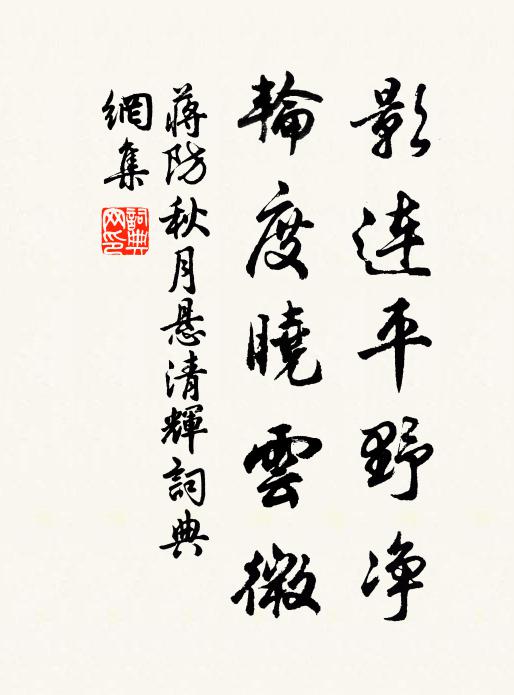 影連平野净
輪度曉雲微
蔣防秋月悬清輝詞典
網集
詞典
网印